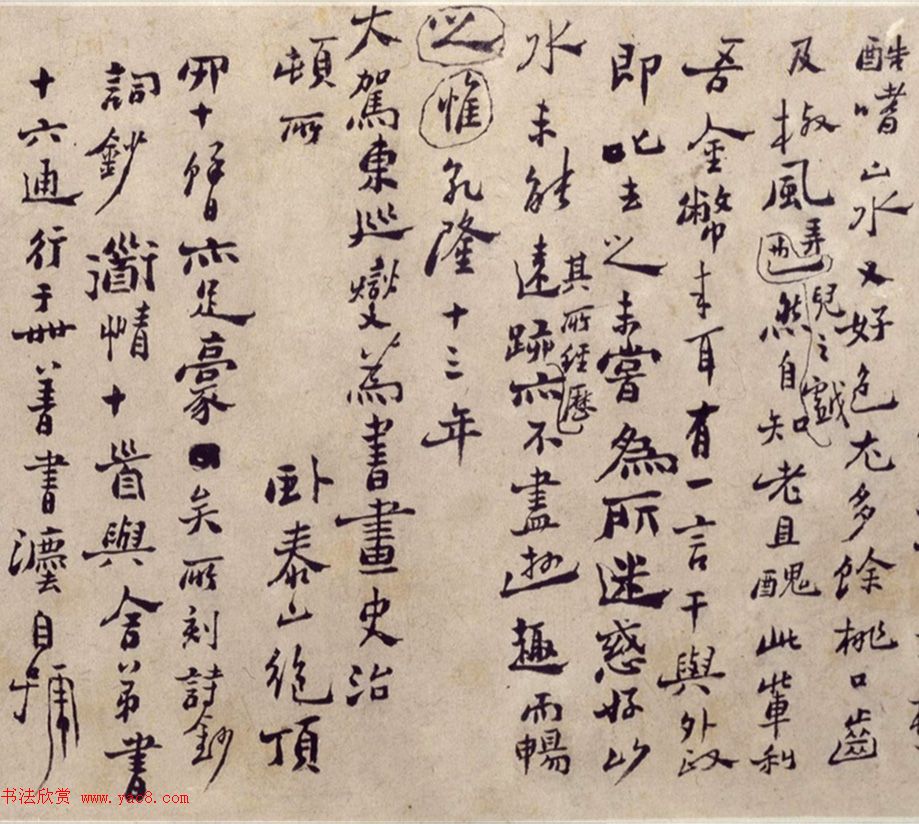 酷嗜山水又好色尤多餘桃口齒
及椒風弄兒之戲然自知老且醜此輩利
吾金幣來耳有一言干與外政
即叱去之未嘗為所迷惑好山
水未能遠跡其所經歷亦不盡遊趣而暢
之惟乾隆十三年
大駕東巡燮為書畫史治
頓所臥泰山絕頂
四十餘日亦足豪矣所刻詩鈔
詞鈔道情十首與舍弟書
十六通行于世善書法自號
书法欣赏 www.yac8.com